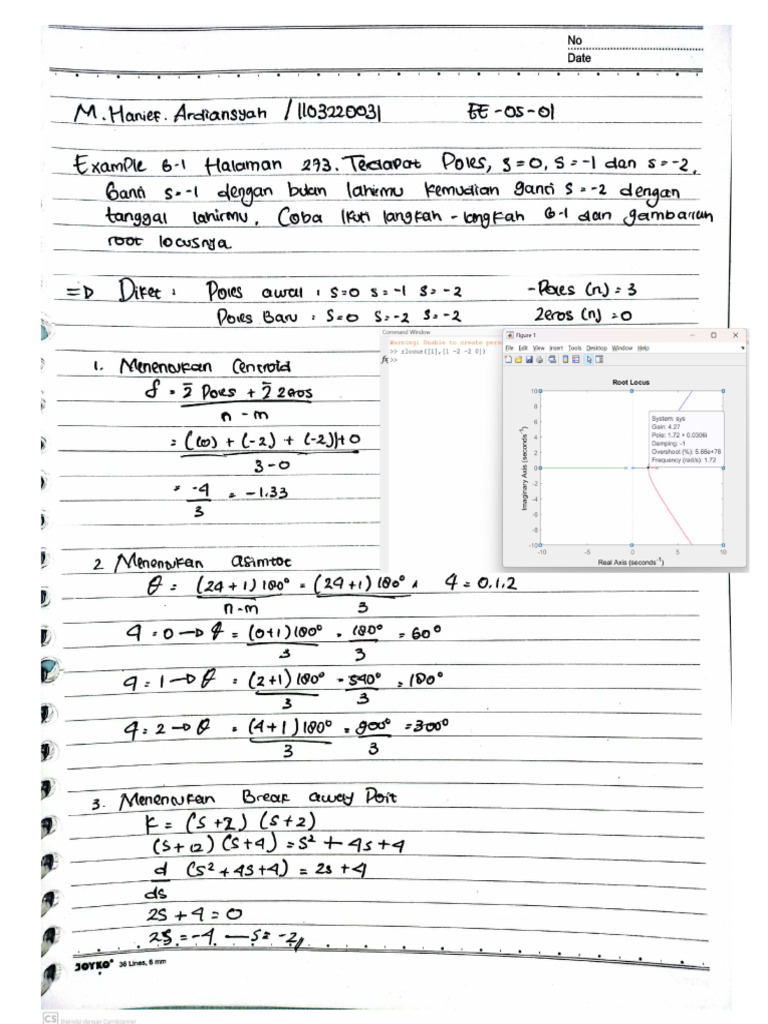 No
Date
M. Hanief. Ardiansyah / 1103220031 EE-05-01
Example 6-1 Halaman 273. Tedapat Poles, s=0, s=-1 dan s=-2,
Ganti s=-1 dengan bulan lahirmu kemudian ganti s=-2 dengan
tanggal lahirmu, Coba ikuti langkah-langkah 6-1 dan gambarkan
root locusnya
=> Diket : Poles awal : s=0 s=-1 s=-2 - Poles (n) = 3
Poles Baru : s=0 s=-2 s=-2 Zeros (n) = 0
Command Window
>> rlocus([1],[1 -2 -2 0])
fx >>
Figure 1
File Edit View Insert Tools Desktop Window Help
Root Locus
System: sys
Gain: 4.27
Pole: 1.72 + 0.0306i
Damping: -1
Overshoot (%): 5.66e+78
Frequency (rad/s): 1.72
Imaginary Axis (seconds⁻¹)
10
8
6
4
2
0
-2
-4
-6
-8
-10
-10 -5 0 5 10
Real Axis (seconds⁻¹)
1. Menenukan Centroid
= Σ Poles + Σ zeros
n - m
= ((0) + (-2) + (-2)) + 0
3-0
= -4 = -1.33
3
2 Menenukan asimtot
θ = (2q+1)180° = (2q+1)180° , q = 0.1.2
n-m 3
q = 0 → θ = (0+1)180° = 180° = 60°
3 3
q = 1 → θ = (2+1)180° = 540° = 180°
3 3
q = 2 → θ = (4+1)180° = 900° = 300°
3 3
3. Menenukan Break away Poit
K = (s+2) (s+2)
(s+12) (s+4) = s² + 4s + 4
d (s² + 4s + 4) = 2s + 4
ds
2s + 4 = 0
2s = -4 — s = -2
JOYKO® 36 Lines, 6 mm
CS